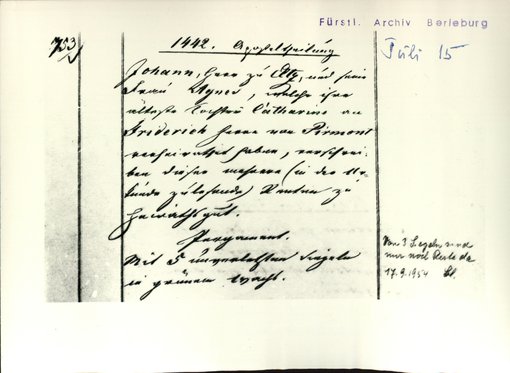 Fürstl. Archiv Berleburg
753
1442. Apostelteilung
Juli 15
Johann, Herr zu Eltz, und seine
Frau Agnes, welche ihre
älteste Tochter Catharine an
Friderich Herrn von Pirmont
verheirathet haben, verschrei-
ben dieser mehrere (in der Ur-
kunde zu lesende) Renten zu
Heirathsgut.
Pergament.
Mit 5 unverletzten Siegeln
in grünem Wachs.
Von 3 Siegeln sind
nur noch Reste da
17.9.1954